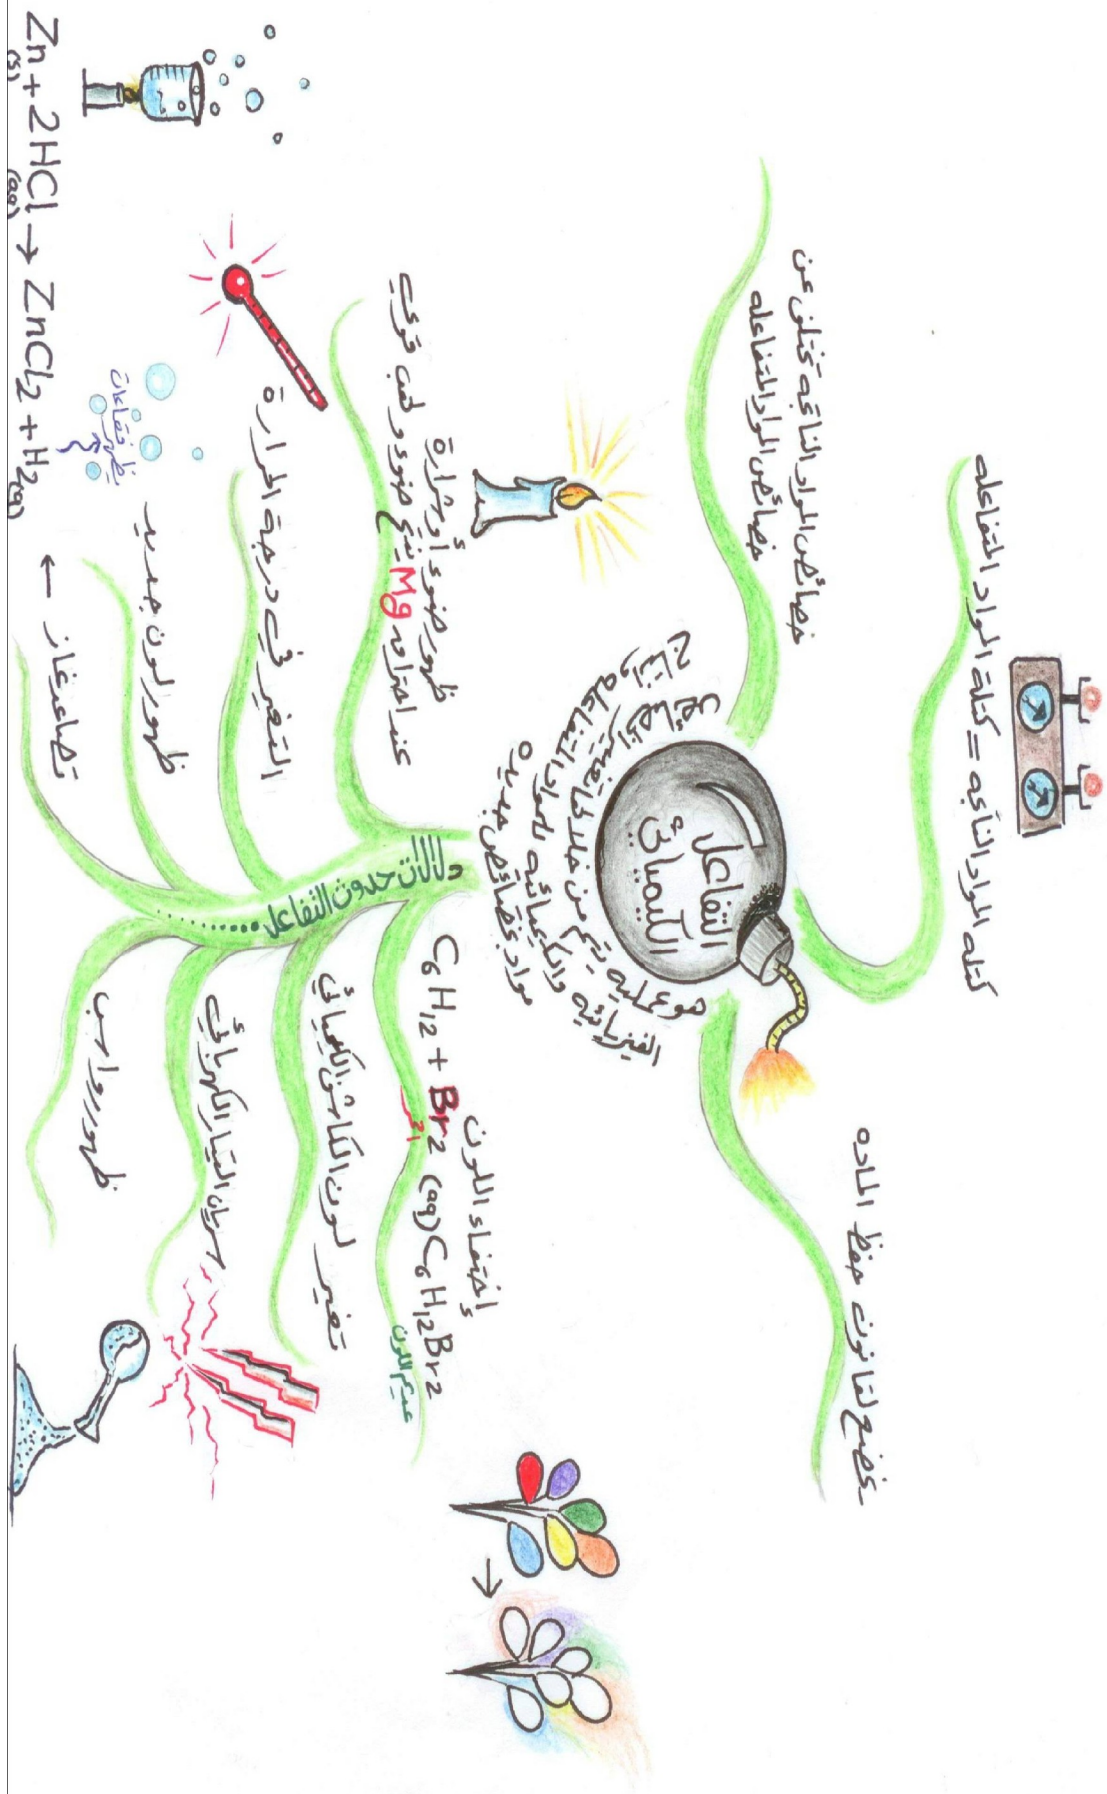 التفاعل
الكيميائي
هو عملية يتم من خلالها تغيير الخصائص
الفيزيائية والكيميائيه للمواد المتفاعله وإنتاج
مواد بخصائص جديده
كتله المواد الناتجه = كتلة المواد المتفاعله
خصائص المواد الناتجه تختلف عن
خصائص المواد المتفاعله
يخضع لقانون حفظ الماده
دلالات حدوث التفاعل
ظهور ضوء أو شرارة
عند احتراق Mg ينتج ضوء ولهب قوي
التغير في درجة الحرارة
ظهور لون جديد
تصاعد غاز ←
يظهر فقاعات
Zn(s) + 2HCl(aq) → ZnCl2 + H2(g)
إختفاء اللون
C6H12 + Br2 (aq) C6H12Br2
احمر
عديم اللون
تغير لون الكاشف الكيميائي
سريان التيار الكهربائي
ظهور رواسب